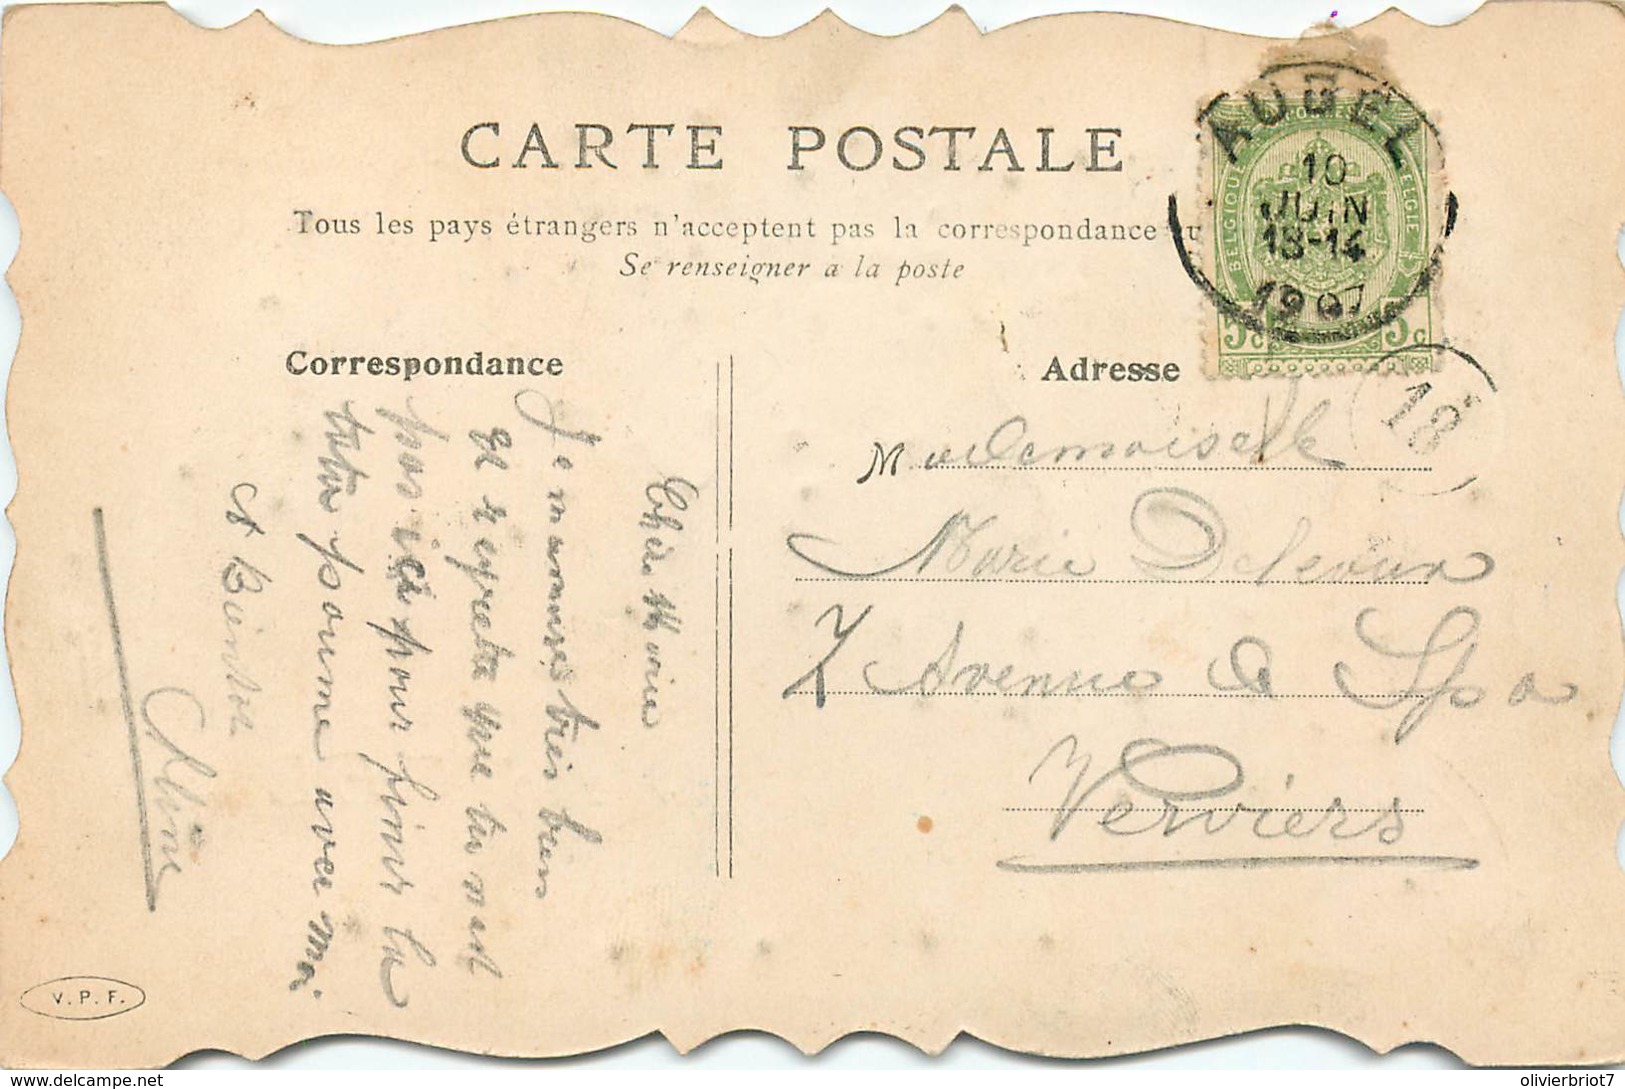 CARTE POSTALE
Tous les pays étrangers n'acceptent pas la correspondance au
Se renseigner a la poste
Correspondance
Adresse
AUBEL
10
JUIN
13-14
1907
BELGIQUE
BELGIE
5c 5c
18
Mademoiselle
Marie
7 Avenue de Spa
Verviers
Chère Marie
Je m'amuse très bien
et regrette que tu n'est
pas ici pour finir la
avec moi
et Bientot
V.P.F.
delcampe.net
olivierbriot7